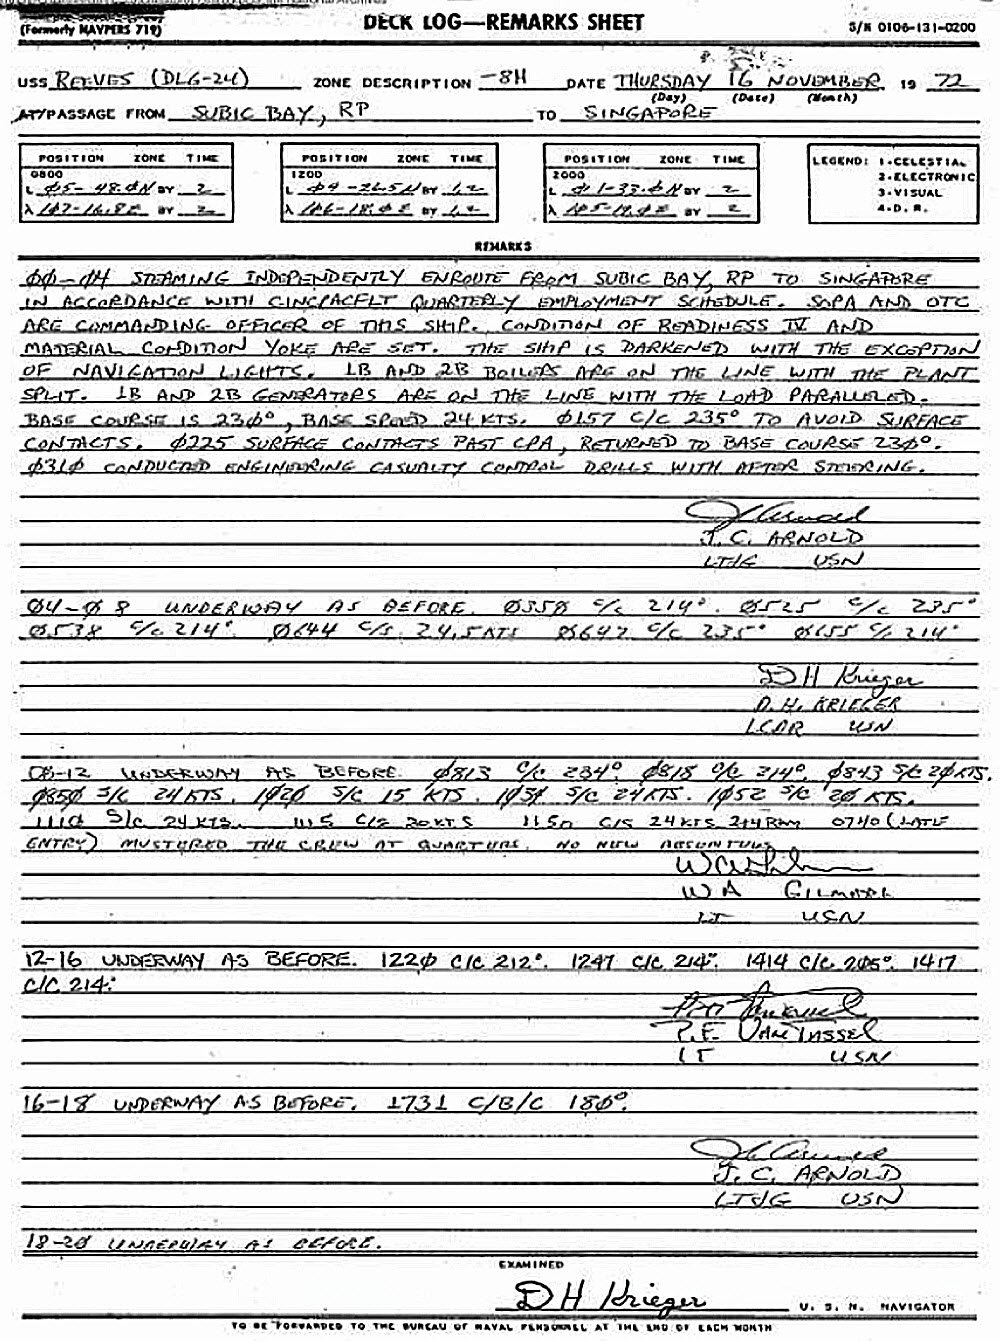 (Formerly NAVPERS 719)
DECK LOG—REMARKS SHEET
S/N 0106-131-0200
USS REEVES (DLG-24) ZONE DESCRIPTION -8H DATE THURSDAY 16 NOVEMBER 19 72
(Day) (Date) (Month)
AT/PASSAGE FROM SUBIC BAY, RP TO SINGAPORE
POSITION ZONE TIME
0800
L Ø5-48.ØN BY 2
λ 1Ø7-16.8E BY 2
POSITION ZONE TIME
1200
L Ø4-26.5N BY 1,2
λ 1Ø6-18.ØE BY 1,2
POSITION ZONE TIME
2000
L Ø1-33.ØN BY 2
λ 1Ø5-19.ØE BY 2
LEGEND: 1-CELESTIAL
2-ELECTRONIC
3-VISUAL
4-D. R.
REMARKS
ØØ-Ø4 STEAMING INDEPENDENTLY ENROUTE FROM SUBIC BAY, RP TO SINGAPORE
IN ACCORDANCE WITH CINCPACFLT QUARTERLY EMPLOYMENT SCHEDULE. SOPA AND OTC
ARE COMMANDING OFFICER OF THIS SHIP. CONDITION OF READINESS IV AND
MATERIAL CONDITION YOKE ARE SET. THE SHIP IS DARKENED WITH THE EXCEPTION
OF NAVIGATION LIGHTS. 1B AND 2B BOILERS ARE ON THE LINE WITH THE PLANT
SPLIT. 1B AND 2B GENERATORS ARE ON THE LINE WITH THE LOAD PARALLELED.
BASE COURSE IS 23Ø°, BASE SPEED 24 KTS. Ø157 C/C 235° TO AVOID SURFACE
CONTACTS. Ø225 SURFACE CONTACTS PAST CPA, RETURNED TO BASE COURSE 23Ø°.
Ø31Ø CONDUCTED ENGINEERING CASUALTY CONTROL DRILLS WITH AFTER STEERING.
J. C. ARNOLD
LTJG USN
Ø4-Ø8 UNDERWAY AS BEFORE. Ø35Ø C/C 214°. Ø525 C/C 235°
Ø538 C/C 214°. Ø644 C/S 24.5 KTS Ø647 C/C 235° Ø655 C/C 214°
D H Krieger
D. H. KRIEGER
LCDR USN
08-12 UNDERWAY AS BEFORE. Ø813 C/C 234°. Ø818 C/C 214°. Ø843 S/C 2Ø KTS.
Ø85Ø S/C 24 KTS. 1Ø2Ø S/C 15 KTS. 1Ø34 S/C 24 KTS. 1Ø52 S/C 2Ø KTS.
111Ø S/C 24 KTS. 1115 C/S 20 KTS 1150 C/S 24 KTS 0740 (LATE
ENTRY) MUSTERED THE CREW AT QUARTERS. NO NEW ABSENTEES
W A GILMORE
LT USN
12-16 UNDERWAY AS BEFORE. 122Ø C/C 212°. 1247 C/C 214°. 1414 C/C 205°. 1417
C/C 214°.
P.E. VAN TASSEL
LT USN
16-18 UNDERWAY AS BEFORE. 1731 C/B/C 18Ø°.
J. C. ARNOLD
LTJG USN
18-2Ø UNDERWAY AS BEFORE.
EXAMINED
D H Krieger U. S. N. NAVIGATOR
TO BE FORWARDED TO THE BUREAU OF NAVAL PERSONNEL AT THE END OF EACH MONTH